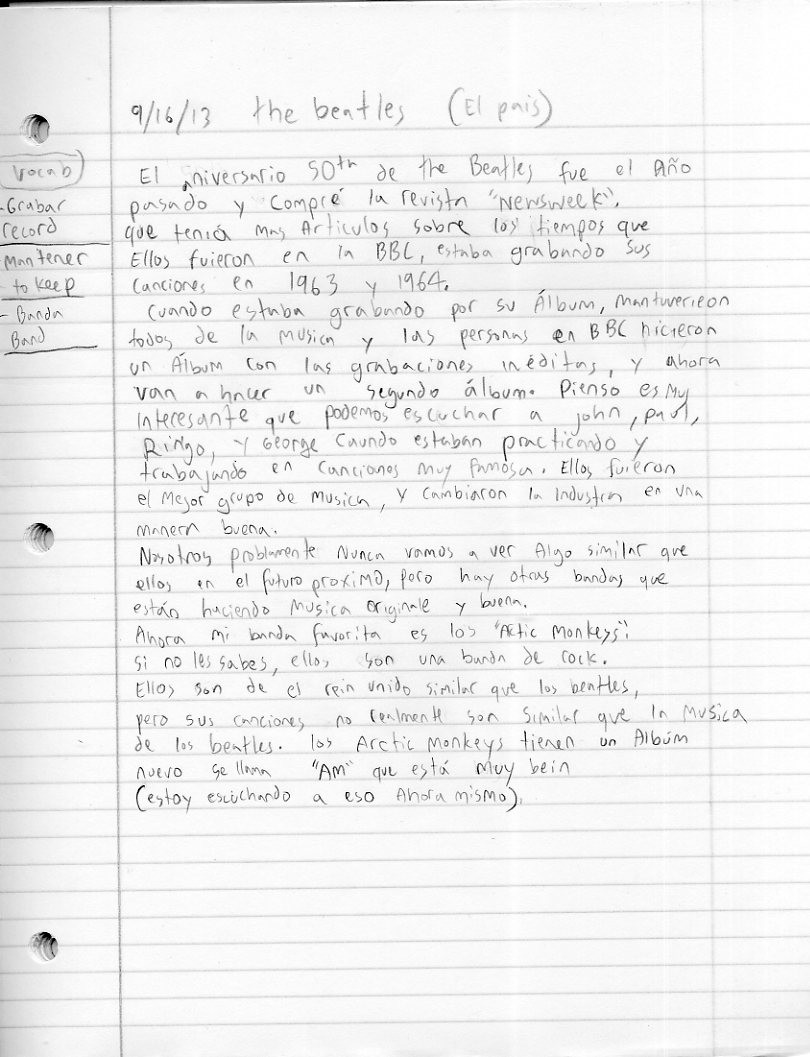 9/16/13 the beatles (El pais)
vocab
- Grabar
record
Mantener
- to keep
- Banda
Band
El aniversario 50th de the Beatles fue el Año
pasado y compré la revista "Newsweek",
que tenía mas Articulos sobre los tiempos que
Ellos fuieron en la BBC, estaba grabando sus
canciones en 1963 y 1964.
Cuando estaba grabando por su Álbum, mantuverieon
todos de la musica y las personas en BBC hicieron
un Álbum con las grabaciones inéditas, y ahora
van a hacer un segundo álbum. Pienso es My
interesante que podemos escuchar a john, paul,
Ringo, y George Caundo estaban practicando y
trabajando en canciones muy famosa. Ellos fuieron
el Mejor grupo de Musica, y cambiaron la industria en una
manera buena.
Nosotros problamente Nunca vamos a ver Algo similar que
ellos en el futuro proximo, pero hay otras bandas que
están haciendo Musica Originale y buena.
Ahora mi banda favorita es los "Actic Monkeys".
si no les sabes, ellos son una banda de rock.
Ellos son de el rein unido similar que los beatles,
pero sus canciones no realmente son similar que la Musica
de los beatles. los Arctic Monkeys tienen un Albúm
nuevo se llama "AM" que está muy bein
(estoy escuchando a eso Ahora mismo).